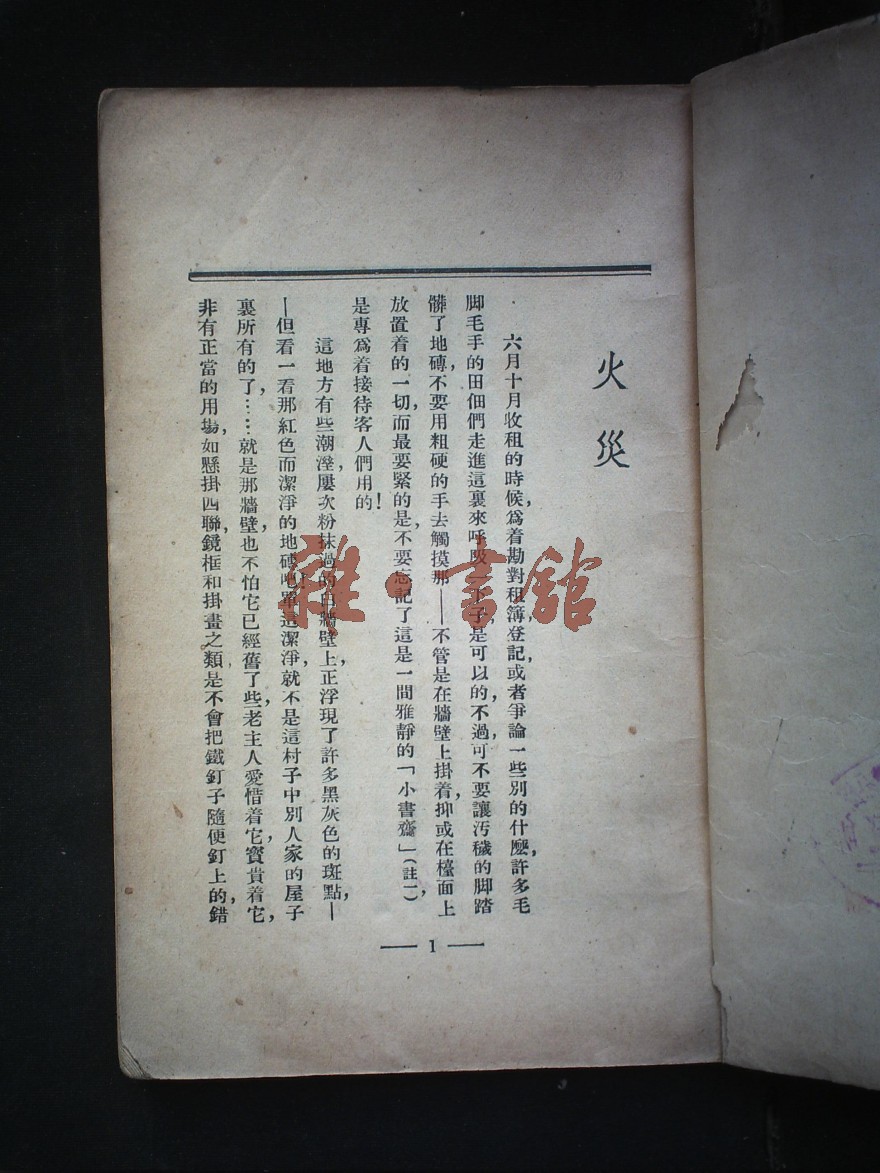 火災
六月十月收租的時候，爲着勘對租簿，登記，或者爭論一些別的什麼，許多毛
脚毛手的田佃們走進這裏來呼吸一下子是可以的，不過，可不要讓汚穢的脚踏
髒了地磚，不要用粗硬的手去觸摸那——不管是在牆壁上掛着，抑或在檯面上
放置着的一切，而最要緊的是，不要忘記了這是一間雅靜的「小書齋」（註一），
是專爲着接待客人們用的！
這地方有些潮溼，屢次粉抹過的白牆壁上，正浮現了許多黑灰色的斑點，—
—但看一看那紅色而潔淨的地磚吧！單這潔淨，就不是這村子中別人家的屋子
裏所有的了，……就是那牆壁，也不怕它已經舊了些，老主人愛惜着它，寶貴着它，
非有正當的用場，如懸掛四聯，鏡框和掛畫之類是不會把鐵釘子隨便釘上的，錯
— 1 —
雜·書館